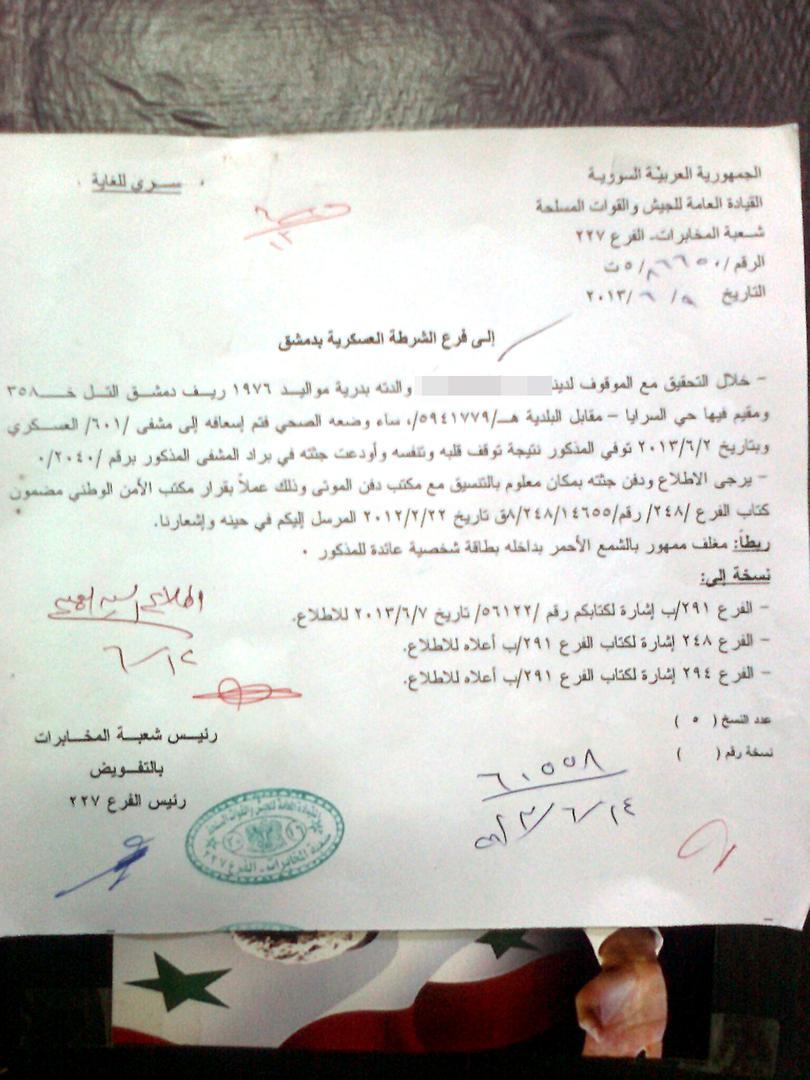 الجمهورية العربية السورية
القيادة العامة للجيش والقوات المسلحة
شعبة المخابرات- الفرع ٢٢٧
الرقم /٨٦٦٥٠/٥ت
التاريخ ٩/ ٦ /٢٠١٣
سـري للغاية
إلى فرع الشرطة العسكرية بدمشق
- خلال التحقيق مع الموقوف لدينا والدته بدرية مواليد ١٩٧٦ ريف دمشق التل خــ٣٥٨
ومقيم فيها حي السرايا – مقابل البلدية هـ/٥٩٤١٧٧٩/، ساء وضعه الصحي فتم إسعافه إلى مشفى /٦٠١/ العسكري
وبتاريخ ٢٠١٣/٦/٢ توفي المذكور نتيجة توقف قلبه وتنفسه وأودعت جثته في براد المشفى المذكور برقم /٢٠٤٠/،
- يرجى الاطلاع ودفن جثته بمكان معلوم بالتنسيق مع مكتب دفن الموتى وذلك عملاً بقرار مكتب الأمن الوطني مضمون
كتاب الفرع /٢٤٨/ رقم/٨/٢٤٨/١٤٦٥٥ق تاريخ ٢٠١٢/٢/٢٢ المرسل إليكم في حينه وإشعارنا.
ربطاً: مغلف ممهور بالشمع الأحمر بداخله بطاقة شخصية عائدة للمذكور .
نسخة إلى:
- الفرع ٢٩١/ب إشارة لكتابكم رقم /٥٦١٢٢/ تاريخ ٢٠١٣/٦/٧ للاطلاع.
- الفرع ٢٤٨ إشارة لكتاب الفرع ٢٩١/ب أعلاه للاطلاع.
- الفرع ٢٩٤ إشارة لكتاب الفرع ٢٩١/ب أعلاه للاطلاع.
٦/١٢
عدد النسخ ( ٥ )
نسخة رقم ( )
رئيس شعبة المخابرات
بالتفويض
رئيس الفرع ٢٢٧
القيادة العامة للجيش والقوات المسلحة
شعبة المخابرات - الفرع ٢٢٧
٦٠٥٥٨